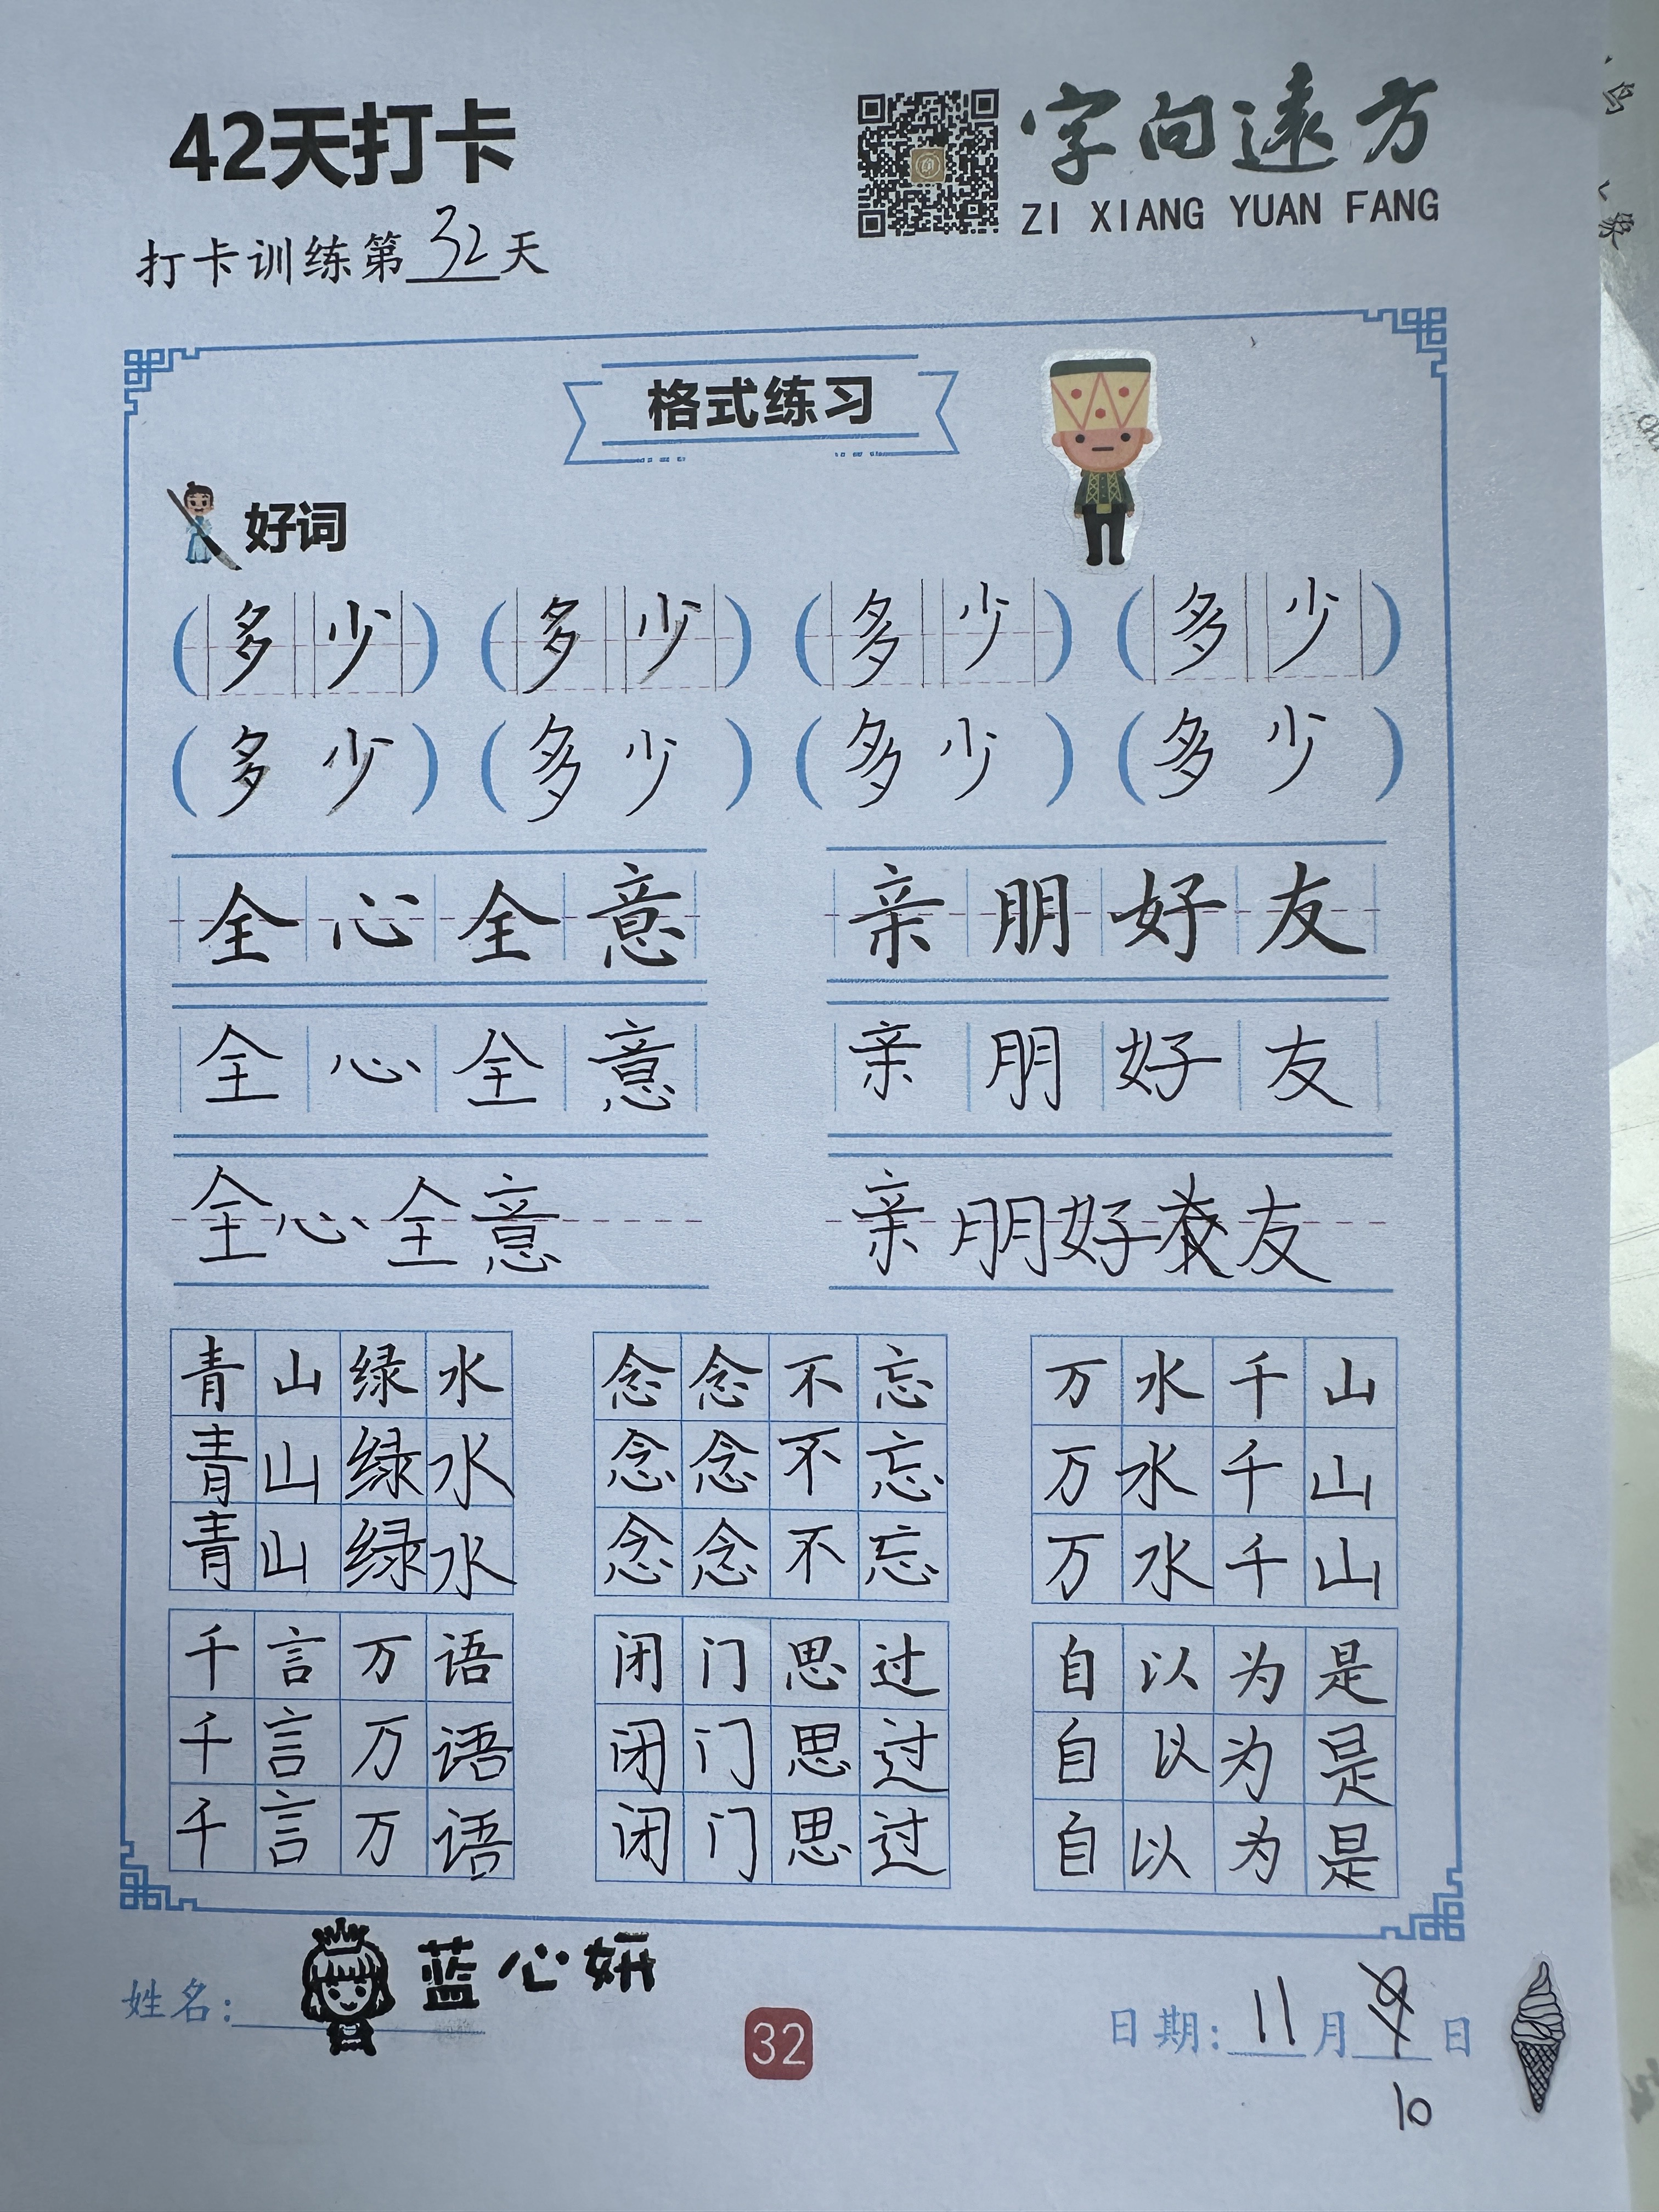 42天打卡
字向遠方
ZI XIANG YUAN FANG
打卡训练第32天
格式练习
好词
(多少) (多少) (多少) (多少)
(多少) (多少) (多少) (多少)
全心全意 亲朋好友
全心全意 亲朋好友
全心全意 亲朋好友
青山绿水 念念不忘 万水千山
青山绿水 念念不忘 万水千山
青山绿水 念念不忘 万水千山
千言万语 闭门思过 自以为是
千言万语 闭门思过 自以为是
千言万语 闭门思过 自以为是
姓名: 蓝心妍
32
日期: 11月9日
10